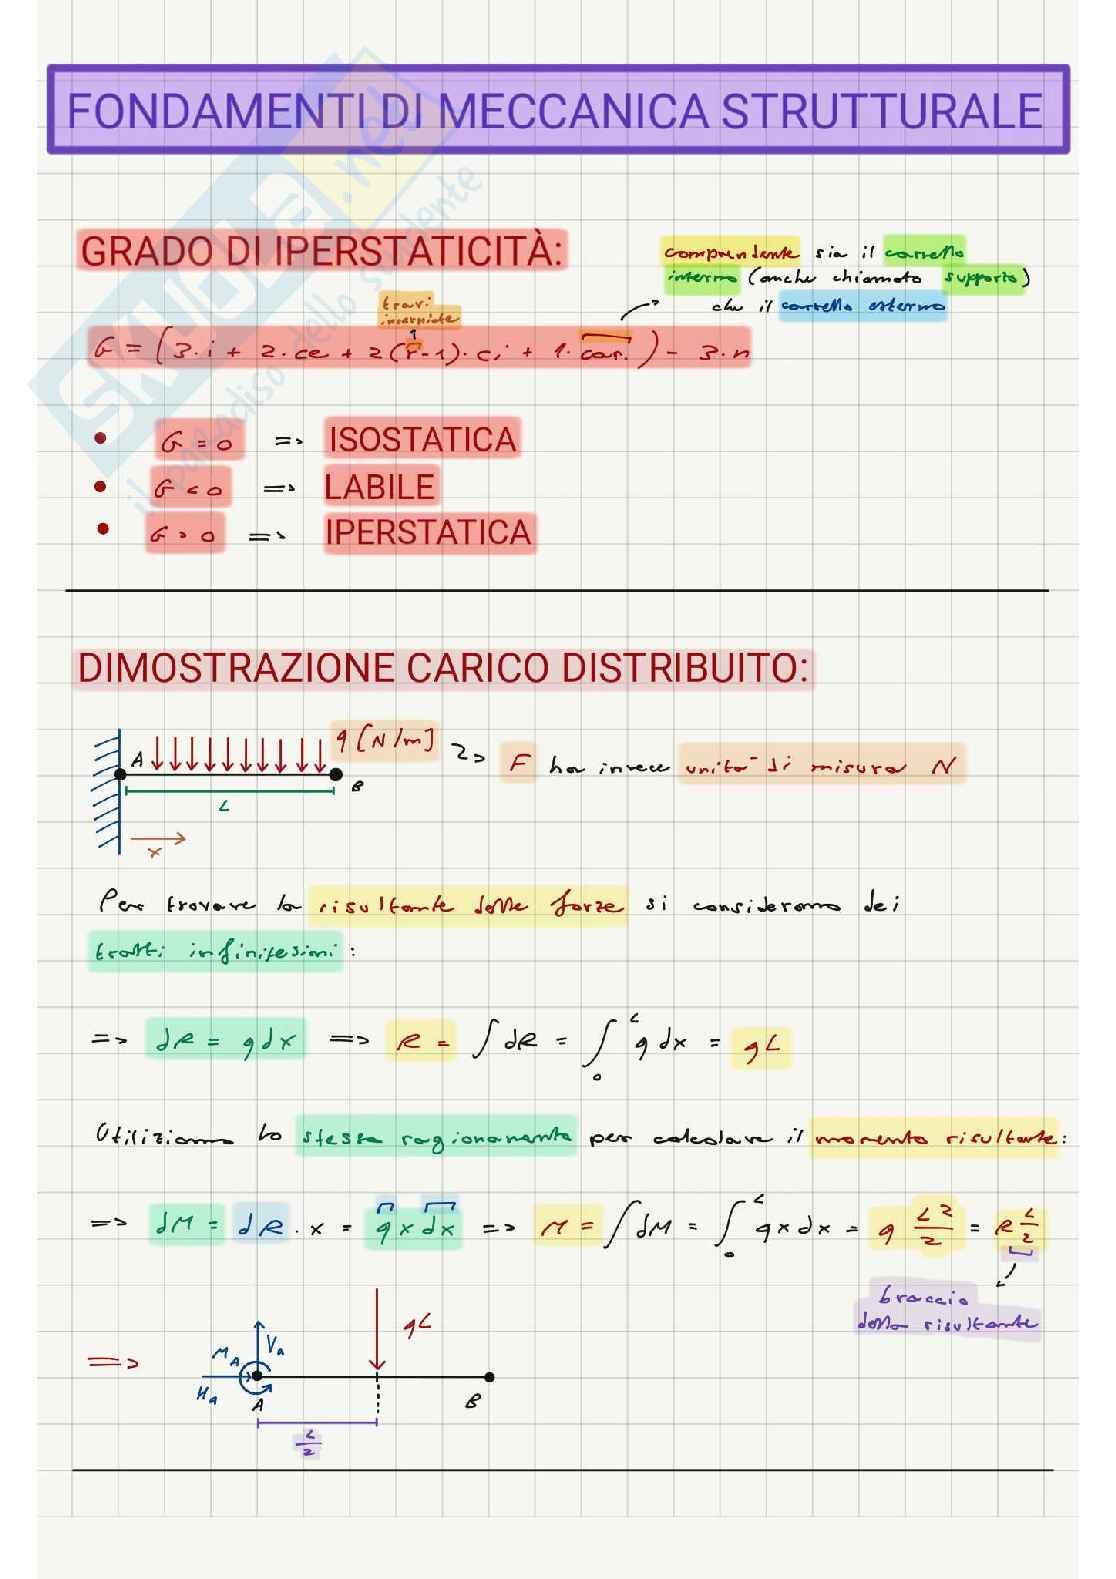 FONDAMENTI DI MECCANICA STRUTTURALE
SKUOLA.net
il paradiso dello studente
GRADO DI IPERSTATICITÀ:
comprendente sia il carrello
interno (anche chiamato supporto)
che il carrello esterno
travi
incernierate
G = (3·i + 2·ce + 2(r-1)·ci + 1·car.) - 3·n
• G = 0 => ISOSTATICA
• G < 0 => LABILE
• G > 0 => IPERSTATICA
DIMOSTRAZIONE CARICO DISTRIBUITO:
A q [N/m] => F ha invece unità di misura N
B
L
x
Per trovare la risultante delle forze si considerano dei
tratti infinitesimi:
=> dR = q dx => R = ∫ dR = ∫₀ᴸ q dx = qL
Utilizziamo lo stesso ragionamento per calcolare il momento risultante:
=> dM = dR · x = q x dx => M = ∫ dM = ∫₀ᴸ q x dx = q L²/2 = R L/2
braccio
della risultante
qL
=> M_A V_A
H_A A B
L/2